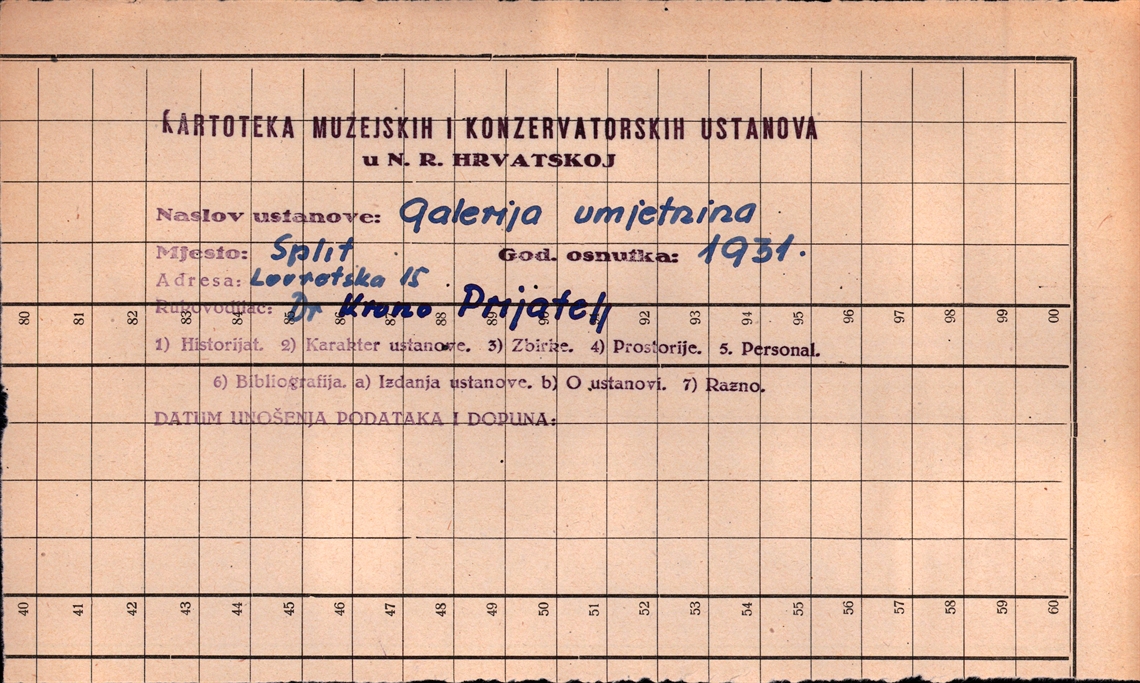 KARTOTEKA MUZEJSKIH I KONZERVATORSKIH USTANOVA
u N. R. HRVATSKOJ
Naslov ustanove: Galerija umjetnina
Mjesto: Split God. osnutka: 1931.
Adresa: Lovretska 15
Rukovodilac: Dr Kruno Prijatelj
80 81 82 83 84 85 86 87 88 89 90 91 92 93 94 95 96 97 98 99 00
1) Historijat. 2) Karakter ustanove. 3) Zbirke. 4) Prostorije. 5. Personal.
6) Bibliografija. a) Izdanja ustanove. b) O ustanovi. 7) Razno.
DATUM UNOŠENJA PODATAKA I DOPUNA:
40 41 42 43 44 45 46 47 48 49 50 51 52 53 54 55 56 57 58 59 60